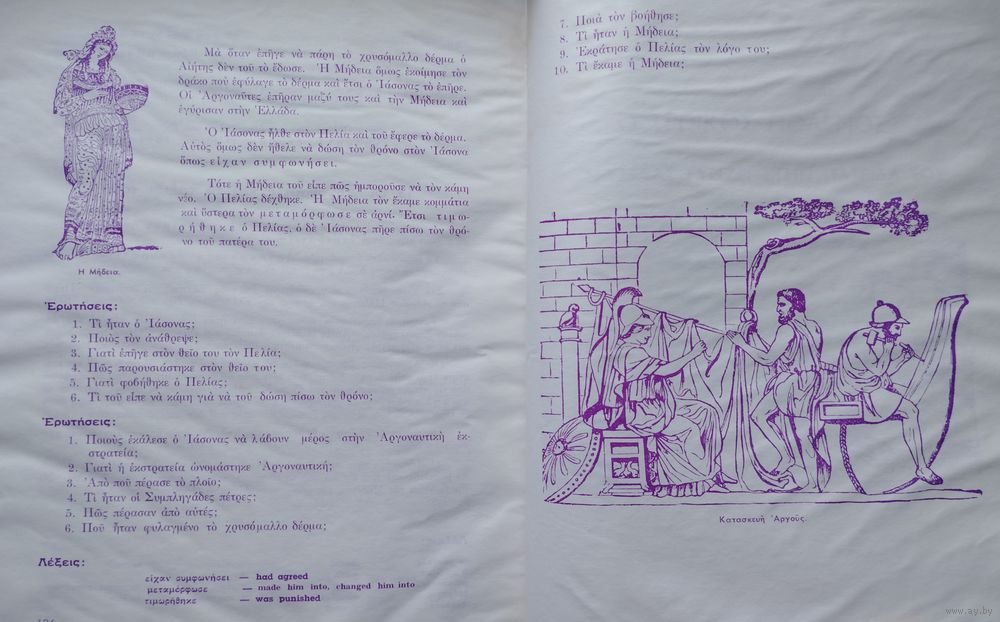 Μὰ ὅταν ἐπῆγε νὰ πάρη τὸ χρυσόμαλλο δέρμα ὁ
Αἰήτης δὲν τοῦ τὸ ἔδωσε. Ἡ Μήδεια ὅμως ἐκοίμησε τὸν
δράκο ποὺ ἐφύλαγε τὸ δέρμα καὶ ἔτσι ὁ Ἰάσονας τὸ ἐπῆρε.
Οἱ Ἀργοναῦτες ἐπῆραν μαζύ τους καὶ τὴν Μήδεια καὶ
ἐγύρισαν στὴν Ἑλλάδα.
Ὁ Ἰάσονας ἦλθε στὸν Πελία καὶ τοῦ ἔφερε τὸ δέρμα.
Αὐτὸς ὅμως δὲν ἤθελε νὰ δώση τὸν θρόνο στὸν Ἰάσονα
ὅπως εἶχαν συμφωνήσει.
Τότε ἡ Μήδεια τοῦ εἶπε πῶς ἠμποροῦσε νὰ τὸν κάμη
νέο. Ὁ Πελίας δέχθηκε. Ἡ Μήδεια τὸν ἔκαμε κομμάτια
καὶ ὕστερα τὸν μεταμόρφωσε σὲ ἀρνί. Ἔτσι τιμω-
ρήθηκε ὁ Πελίας, ὁ δὲ Ἰάσονας πῆρε πίσω τὸν θρό-
νο τοῦ πατέρα του.
Η Μήδεια.
Ἐρωτήσεις:
1. Τί ἦταν ὁ Ἰάσονας;
2. Ποιὸς τὸν ἀνάθρεψε;
3. Γιατὶ ἐπῆγε στὸν θεῖο του τὸν Πελία;
4. Πῶς παρουσιάστηκε στὸν θεῖο του;
5. Γιατὶ φοβήθηκε ὁ Πελίας;
6. Τὶ τοῦ εἶπε νὰ κάμη γιὰ νὰ τοῦ δώση πίσω τὸν θρόνο;
Ἐρωτήσεις:
1. Ποιοὺς ἐκάλεσε ὁ Ἰάσονας νὰ λάβουν μέρος στὴν Ἀργοναυτικὴ ἐκ-
στρατεία;
2. Γιατὶ ἡ ἐκστρατεία ὠνομάστηκε Ἀργοναυτική;
3. Ἀπὸ ποῦ πέρασε τὸ πλοῖο;
4. Τὶ ἦταν οἱ Συμπληγάδες πέτρες;
5. Πῶς πέρασαν ἀπὸ αὐτές;
6. Ποῦ ἦταν φυλαγμένο τὸ χρυσόμαλλο δέρμα;
Λέξεις:
εἶχαν συμφωνήσει — had agreed
μεταμόρφωσε — made him into, changed him into
τιμωρήθηκε — was punished
7. Ποιὰ τὸν βοήθησε;
8. Τὶ ἦταν ἡ Μήδεια;
9. Ἐκράτησε ὁ Πελίας τὸν λόγο του;
10. Τὶ ἔκαμε ἡ Μήδεια;
Κατασκευὴ Ἀργοῦς.
www.ay.by